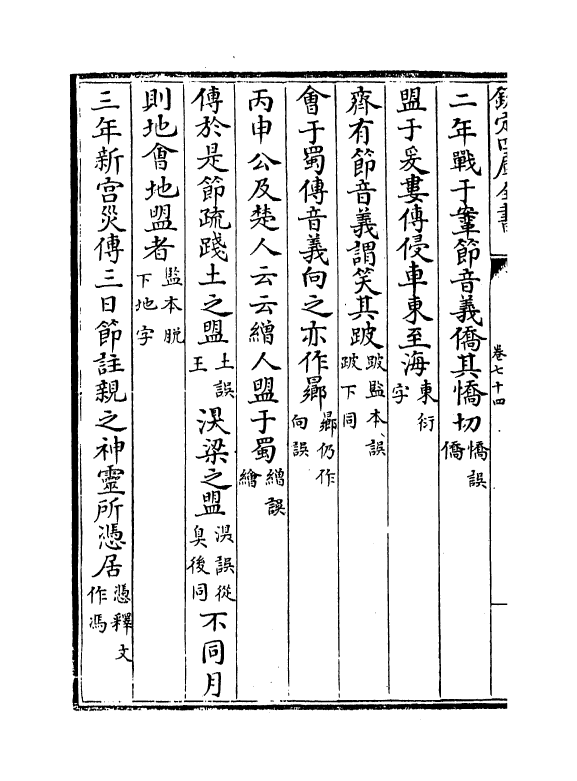 欽定四庫全書
卷七十四
二年戰于鞌節音義僑其憍切憍誤僑
盟于爰婁傳侵車東至海東衍字
齊有節音義謂笑其跛跛監本誤跛下同
會于蜀傳音義向之亦作曏曏仍作向誤
丙申公及楚人云云繒人盟于蜀繒誤繪
傳於是節疏踐土之盟土誤王湨梁之盟湨誤從臭後同不同月
則地會地盟者監本脱下地字
三年新宫災傳三日節註親之神靈所憑居憑釋文作馮